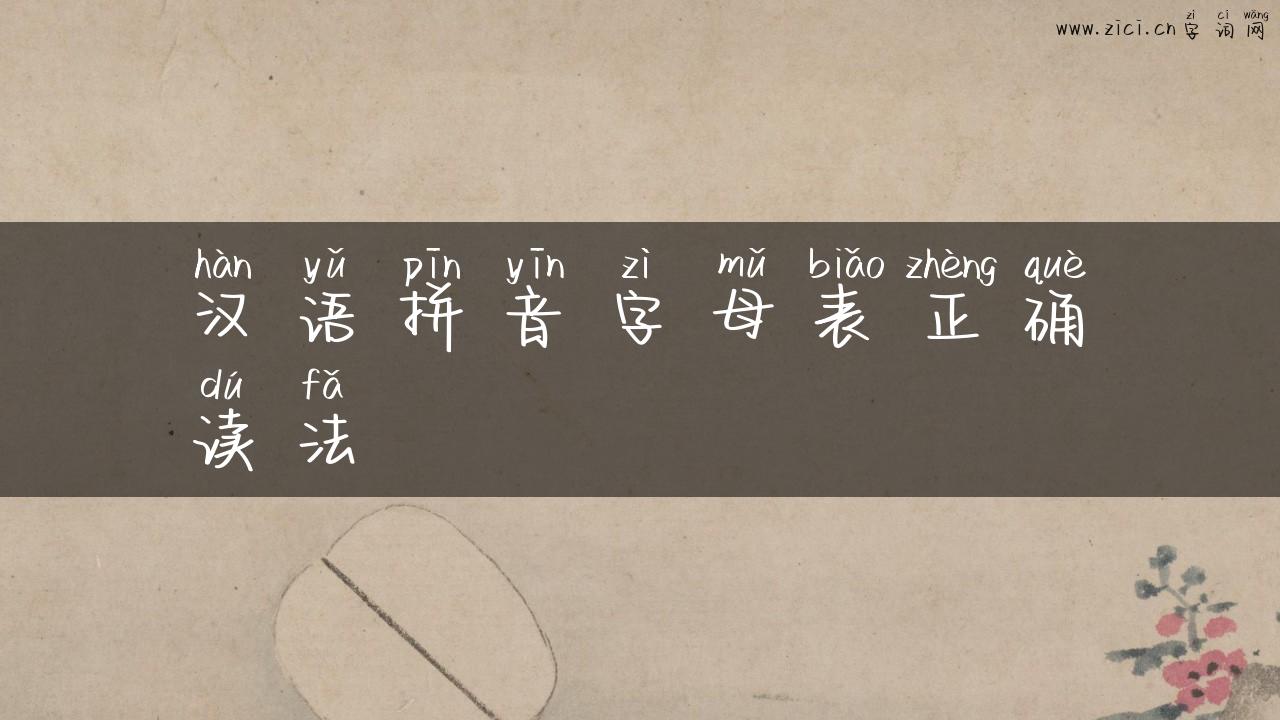 zì cí wǎng
www.zici.cn字词网
hàn yǔ pīn yīn zì mǔ biǎo zhèng què
汉语拼音字母表正确
dú fǎ
读法